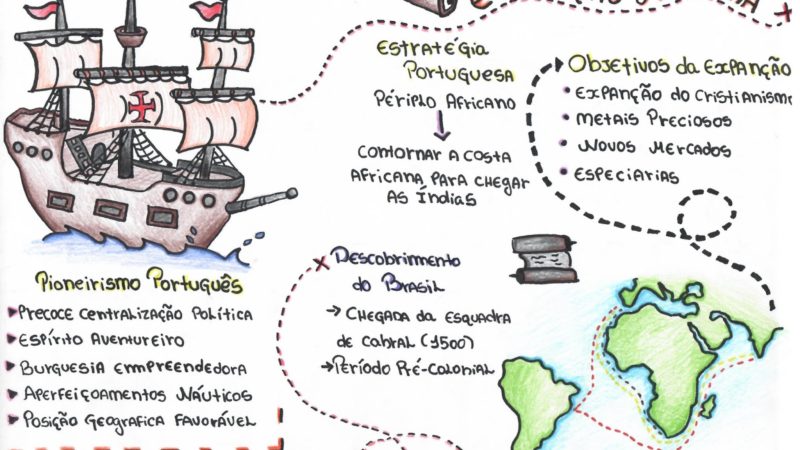 Estratégia
Portuguesa
Périplo Africano
Contornar a costa
Africana para chegar
as Índias
Objetivos da Expanção
• Expanção do Cristianismo
• Metais Preciosos
• Novos Mercados
• Especiarias
Pioneirismo Português
Precoce centralização Política
Espírito Aventureiro
Burguesia empreendedora
Aperfeiçoamentos Náuticos
Posição Geografica Favorável
Descobrimento
do Brasil
→ Chegada da Esquadra
de Cabral (1500)
→ Período Pré-Colonial